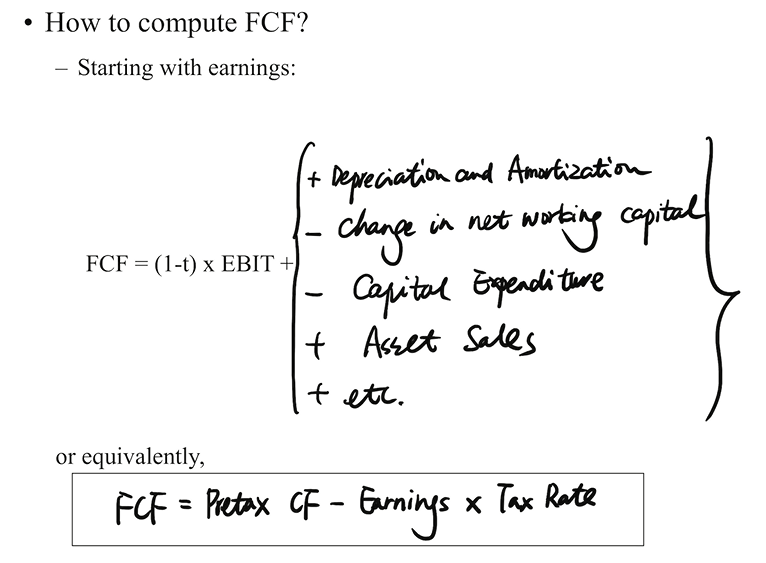 • How to compute FCF?
– Starting with earnings:
+ Depreciation and Amortization
- Change in net working capital
FCF = (1-t) x EBIT +
- Capital Expenditure
+ Asset Sales
+ etc.
or equivalently,
FCF = Pretax CF - Earnings x Tax Rate